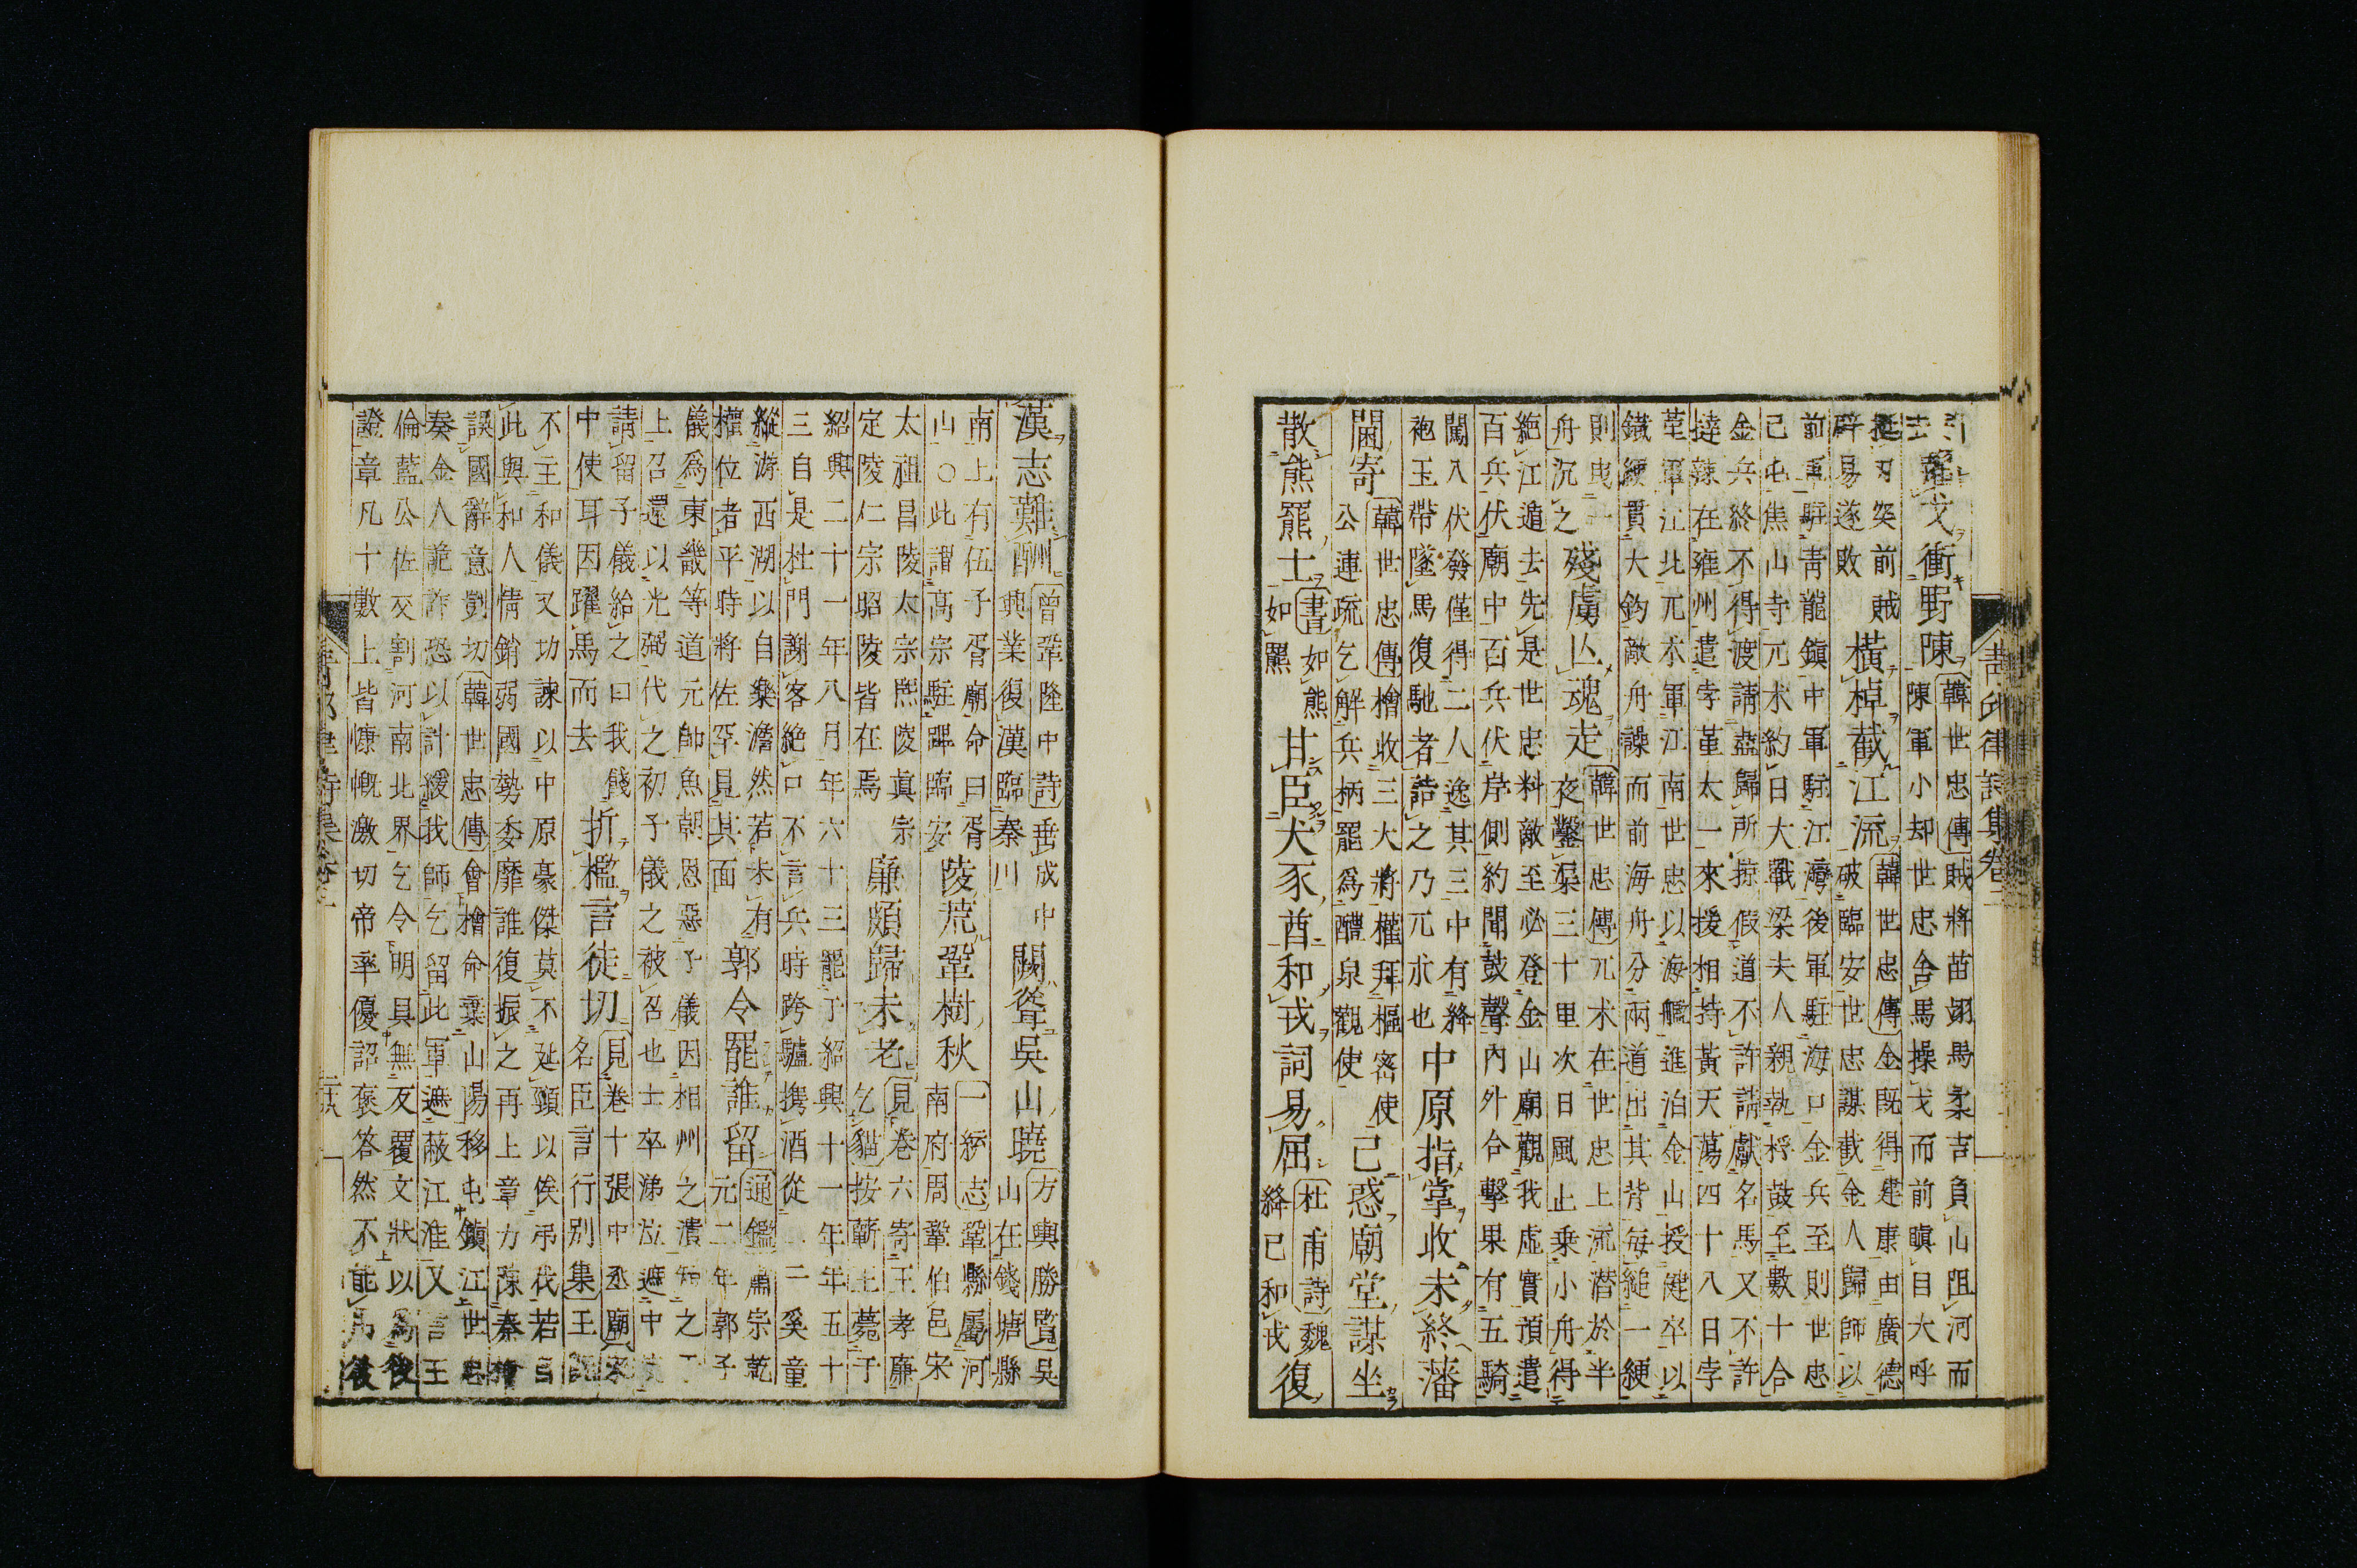 雕戈衝野陳
韓世忠傳賊將苗翊馬柔吉負山阻河而
陳軍小却世忠舍馬操戈而前瞋目大呼
挺刃突前賊
辟易遂敗
橫棹截江流
韓世忠傳金既得建康由廣德
破臨安世忠謀截金人歸師以
前軍駐青龍鎮中軍駐江灣後軍駐海口金兵至則世忠
已屯焦山寺兀朮約日大戰梁夫人親執桴鼓至數十合
金兵終不得渡請盡歸所掠假道不許請獻名馬又不許
撻辣在雍州遣孛堇太一來援相持黃天蕩四十八日孛
堇軍江北兀朮軍江南世忠以海艦進泊金山授健卒以
鐵綆貫大鈎敵舟譟而前海舟分兩道出其背每縋一綆
則曳一
舟沉之
殘虜亾魂走
韓世忠傳兀朮在世忠上流潛於半
夜鑿渠三十里次日風止乘小舟得
絕江遁去先是世忠料敵至必登金山廟觀我虛實預遣
百兵伏廟中百兵伏岸側約聞鼓聲內外合擊果有五騎
闖入伏發僅得二人逸其三中有絳
袍玉帶墜馬復馳者詰之乃兀朮也
中原指掌收未終藩
閫寄
韓世忠傳檜收三大將權拜樞密使
公連疏乞解兵柄罷爲醴泉觀使
已惑廟堂謀坐
散熊羆士
書如熊
如羆
甘臣犬豕酋和戎詞易屈
杜甫詩魏
絳已和戎
復
青邱律詩集卷二
漢志難酬
曾鞏隆中詩垂成中
興業復漢臨秦川
闕聳吳山曉
方輿勝覽吳
山在錢塘縣
南上有伍子胥廟命曰胥
山○此謂高宗駐蹕臨安
陵荒鞏樹秋
一統志鞏縣屬河
南府周鞏伯邑宋
太祖昌陵太宗熙陵真宗
定陵仁宗昭陵皆在焉
廉頗歸未老
見卷六寄王孝廉
乞貓按蘄王薨于
紹興二十一年八月年六十三罷于紹興十一年年五十
三自是杜門謝客絕口不言兵時跨驢携酒從一二奚童
縱游西湖以自樂澹然若未有
權位者平時將佐罕見其面
郭令罷誰留
通鑑肅宗乾
元二年郭子
儀爲東畿等道元帥魚朝恩惡子儀因相州之潰短之于
上召還以光弼代之初子儀之被召也士卒涕泣遮中使
請留子儀紿之曰我餞
中使耳因躍馬而去
折檻言徒切
見卷十張中丞廟宋
名臣言行別集王
不主和儀又功諫以中原豪傑莫不延頸以俟弔伐若自
此與和人情銷弱國勢委靡誰復振之再上章力陳秦檜
誤國辭意剴切韓世忠傳會檜命葉山陽移屯鎮江世忠
奏金人詭詐恐以計緩我師乞留此軍遮蔽江淮又言王
倫藍公佐交割河南北界乞令明具無反覆文狀以爲後
證章凡十數上皆慷慨激切帝率優詔褒答然不能爲後